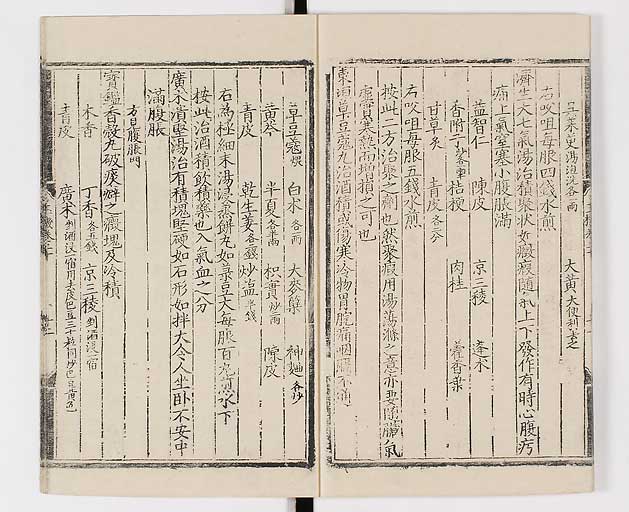 大黃大便利去之
右㕮咀每服四錢水煎
濟生大七氣湯治積聚狀如癥瘕隨氣上下發作有時心腹㽲
痛上氣窒塞小腹脹滿
益智仁 陳皮 京三稜 蓬朮
香附子 桔梗 肉桂 藿香葉
甘草炙 青皮各三分
右㕮咀每服五錢水煎
按此二方治聚之劑也然聚瘕用湯蕩滌之意亦要隨臟氣
虛實寒熱而增損之可也
東垣草豆蔻丸治酒積或傷寒冷物胃脘痛咽膈不通
草豆蔻煨 白朮各一兩 大麥蘖 神麯各炒
黃芩 半夏各半兩 枳實炒二兩 陳皮
青皮 乾生姜各二錢 炒盐半錢
右為極細末湯浸蒸餅丸如菉豆大每服百丸煎水下
按此治酒積飲積藥也入氣血之分
廣朮潰堅湯治有積塊堅硬如石形如拌大令人坐卧不安中
滿腹脹
方見腹脹門
寶鑑香殼丸破痰癖之癥塊及冷積
木香 丁香各五錢 京三稜剉酒浸一宿
青皮 廣朮剉酒浸一宿用去皮巴豆三十粒同炒巴豆黃色